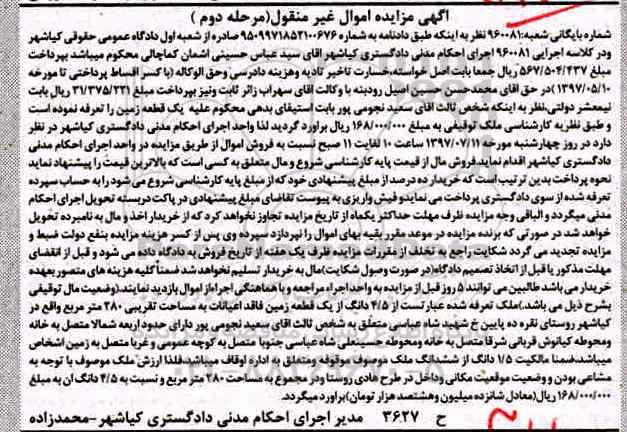 آگهی مزایده اموال غیر منقول(مرحله دوم )
شماره بایگانی شعبه:۹۶۰۰۸۱ نظر به اینکه طبق دادنامه به شماره ۹۵۰۹۹۷۱۸۵۲۱۰۰۶۷۶ صادره از شعبه اول دادگاه عمومی حقوقی کیاشهر
ودر کلاسه اجرایی ۹۶۰۰۸۱ اجرای احکام مدنی دادگستری کیاشهر اقای سید عباس حسینی اشمان کماچالی محکوم میباشد بپرداخت
مبلغ ۵۶۷/۵۰۴/۴۳۷ ریال جمعا بابت اصل خواسته،خسارت تاخیر تادیه وهزینه دادرسی وحق الوکاله (با کسر اقساط پرداختی تا مورخه
۱۳۹۷/۰۵/۱۰ )در حق اقای محمدحسن حسین اصیل رودبنه با وکالت اقای سهراب زائر ثابت ونیز بپرداخت مبلغ ۳۱/۳۷۵/۲۲۱ ریال بابت
نیمعشر دولتی،نظر به اینکه شخص ثالث اقای سعید نجومی پور بابت استیفای بدهی محکوم علیه یک قطعه زمین را تعرفه نموده است
و طبق نظریه کارشناسی ملک توقیفی به مبلغ ۱۶۸/۰۰۰/۰۰۰ ریال براورد گردید لذا واحد اجرای احکام مدنی دادگستری کیاشهر در نظر
دارد در روز چهارشنبه مورخه ۱۳۹۷/۰۷/۱۱ ساعت ۱۰ لغایت ۱۱ صبح نسبت به فروش اموال از طریق مزایده در واحد اجرای احکام مدنی
دادگستری کیاشهر اقدام نماید.فروش مال از قیمت پایه کارشناسی شروع و مال متعلق به کسی است که بالاترین قیمت را پیشنهاد نماید
نحوه پرداخت بدین ترتیب است که خریدار ده درصد از مبلغ پیشنهادی خود که از مبلغ پایه کارشناسی شروع می شود را به حساب سپرده
تعرفه شده از سوی دادگستری پرداخت می نمایدو فیش واریزی به پیوست تقاضای مبلغ پیشنهادی در پاکت دربسته تحویل اجرای احکام
مدنی میگردد و الباقی وجه مزایده ظرف مهلت حداکثر یکماه از تاریخ مزایده تجاوز نخواهد کرد که از خریدار اخذ و مال به نامبرده تحویل
خواهد شد در صورتی که برنده مزایده در موعد مقرر بقیه بهای اموال را نپردازد سپرده وی پس از کسر هزینه مزایده بنفع دولت ضبط و
مزایده تجدید می گردد شکایت راجع به تخلف از مقررات مزایده ظرف یک هفته از تاریخ فروش به دادگاه داده می شود و قبل از انقضای
مهلت مذکور یا قبل از اتخاذ تصمیم دادگاه(در صورت وصول شکایت)مال به خریدار تسلیم نخواهد شد ضمنا کلیه هزینه های متصور بعهده
خریدار می باشد طالبین می توانند ۵ روز قبل از مزایده به واحد اجراء مراجعه و با هماهنگی اجراء از اموال بازدید نمایند.(وضعیت مال توقیفی
بشرح ذیل می باشد.)ملک تعرفه شده عبارتست از ۴/۵ دانگ از یک قطعه زمین فاقد اعیانات به مساحت تقریبی ۲۸۰ متر مربع واقع در
کیاشهر روستای نقره ده پایین خ شهید ستار عباسی و متعلق به شخص ثالث اقای سعید نجومی پور دارای حدود اربعه شمالا متصل به خانه
ومحوطه کیانوش قربانی شرقا متصل به خانه ومحوطه حسینعلی شاه عباسی جنوبا متصل به کوچه عمومی و غربا متصل به زمین اشخاص
میباشد.ضمنا مالکیت ۱/۵ دانگ از ششدانگ ملک موصوف موقوفه ومتعلق به اداره اوقاف میباشد.فلذا ارزش ملک موصوف با توجه به
مشاعی بودن و وضعیت موقعیت مکانی وداخل در طرح هادی روستا ودر مجموع به مساحت ۲۸۰ متر مربع و نسبت به ۴/۵ دانگ ان به مبلغ
۱۶۸/۰۰۰/۰۰۰ ریال(معادل شانزده میلیون وهشتصد هزار تومان)براورد میگردد.
ح ۳۶۲۷ مدیر اجرای احکام مدنی دادگستری کیاشهر-محمدزاده